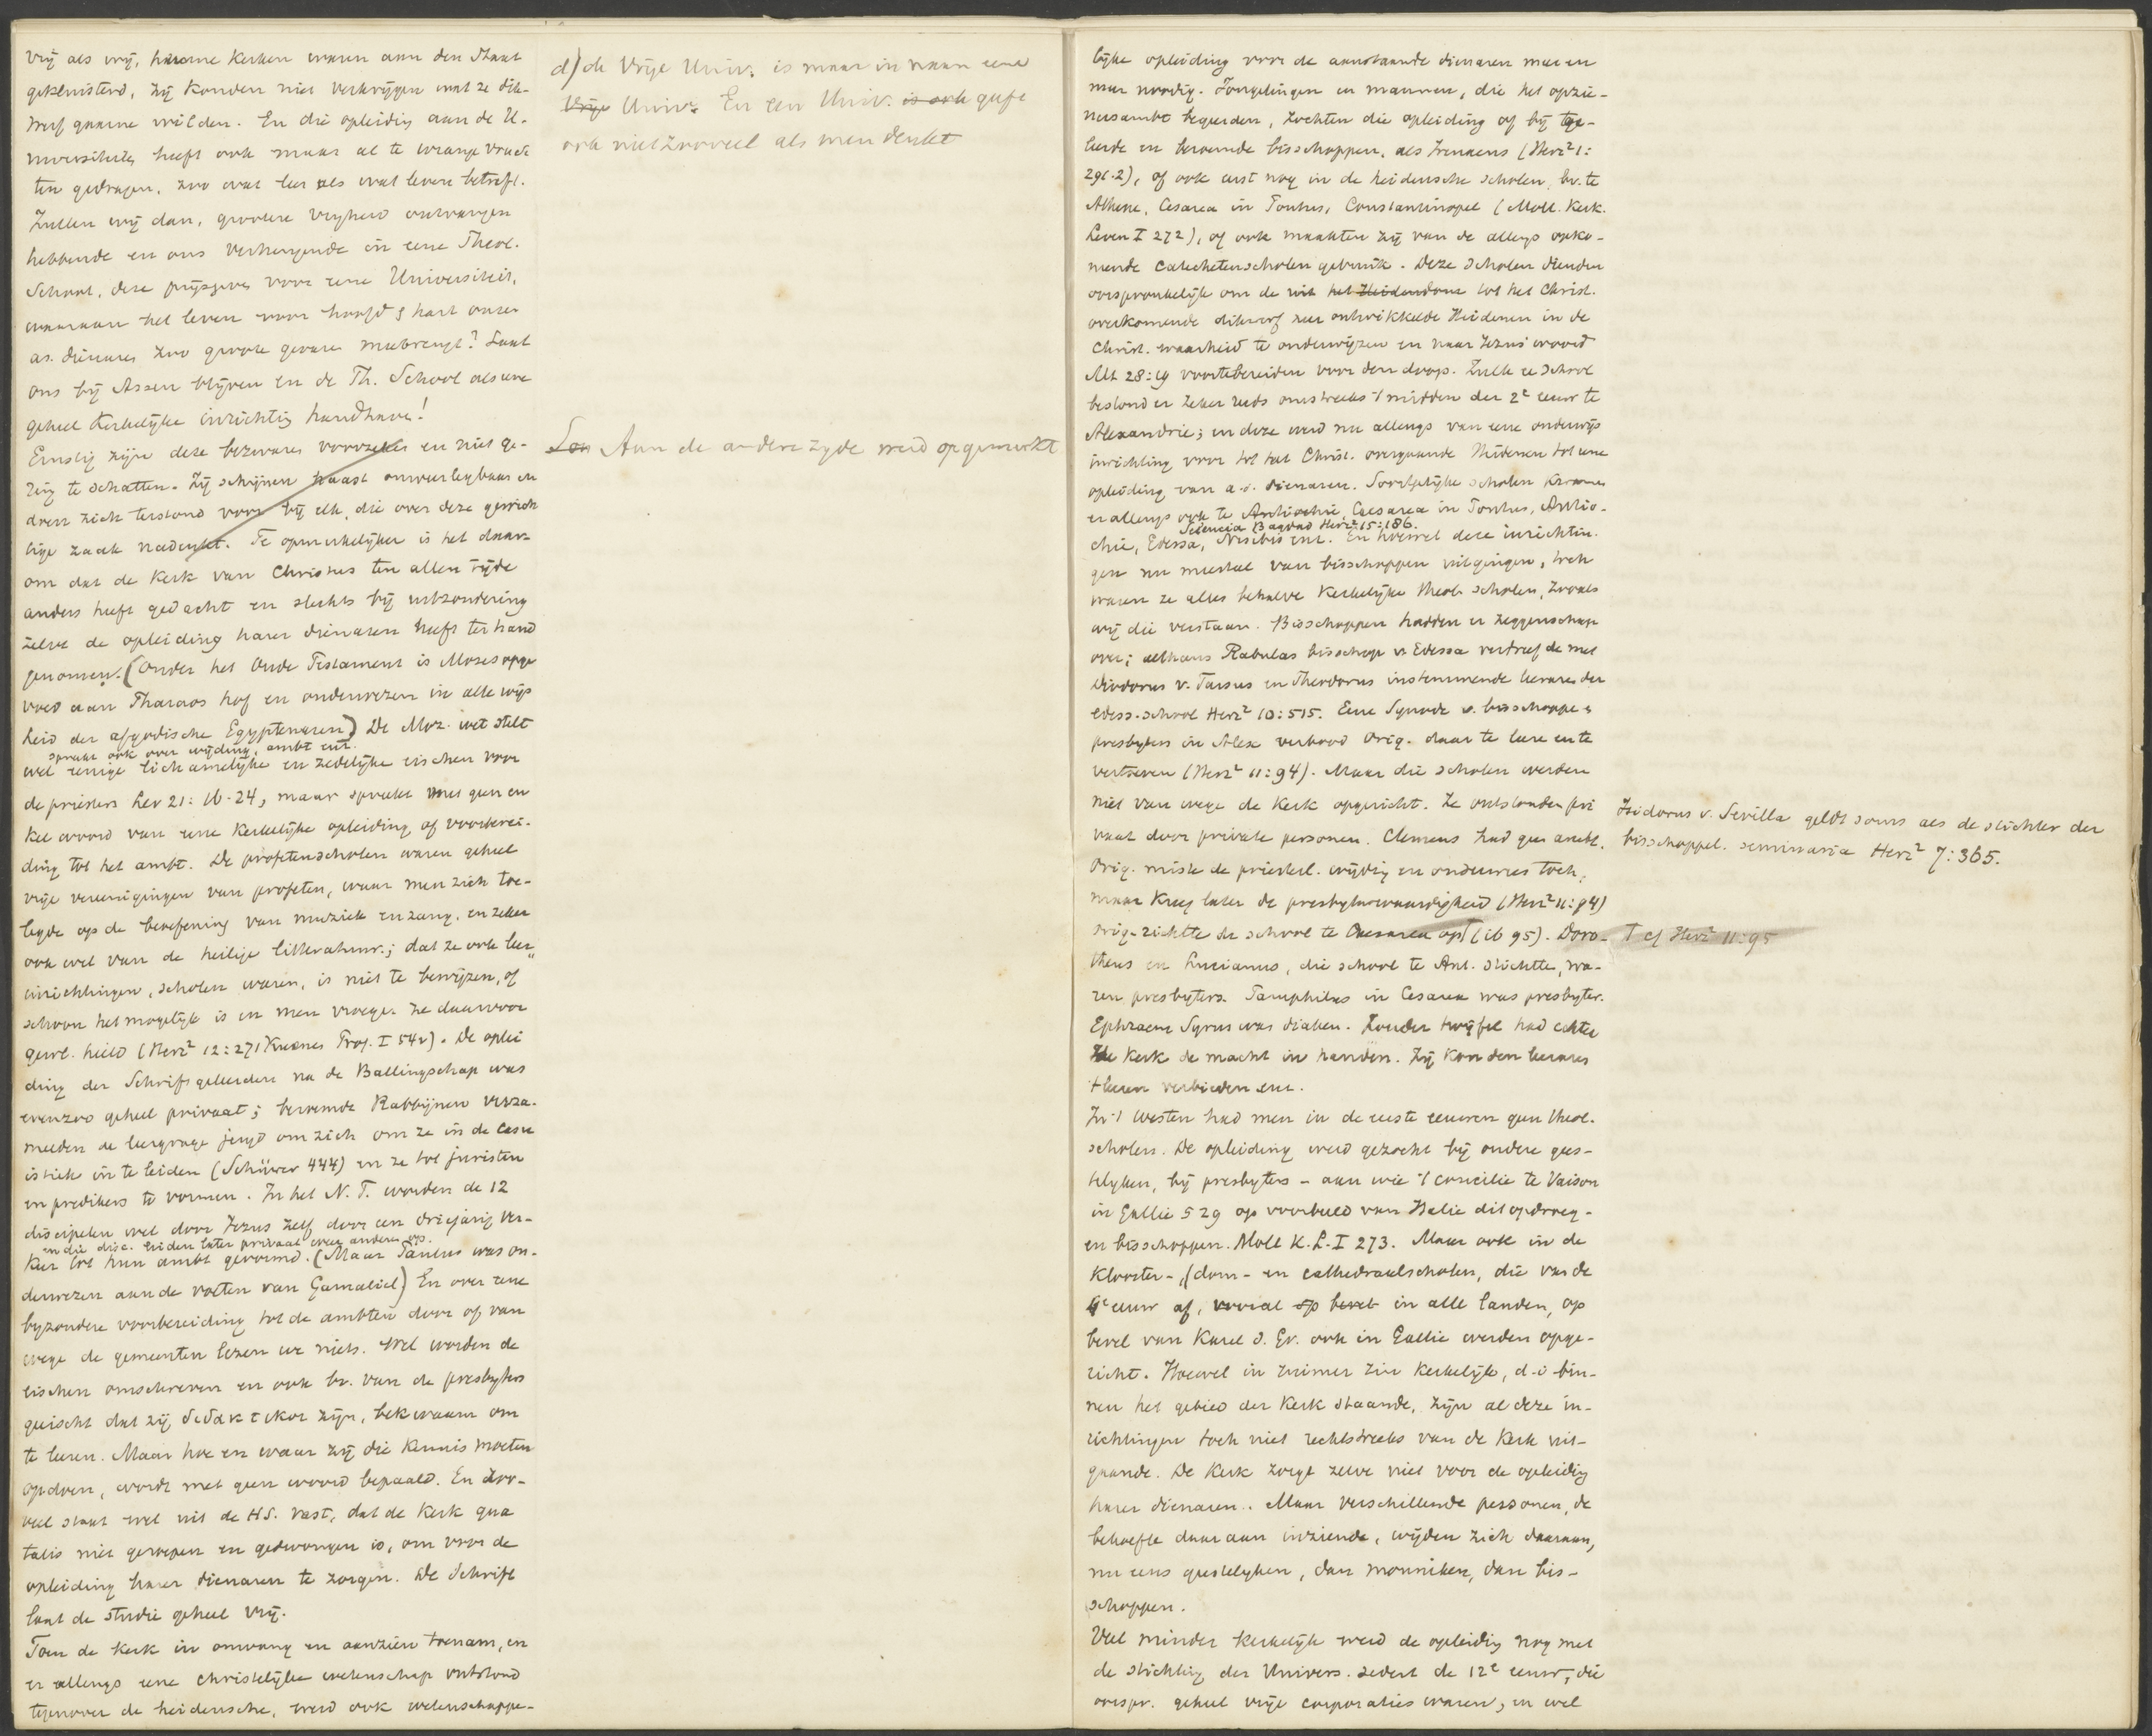 vrij als wij, hunne kerken waren aan den Staat
gekluisterd, zij konden niet verkrijgen wat ze dik-
werf gaarne wilden. En die opleiding aan de U-
niversiteiten heeft ook maar al te wrange vruch
ten gedragen, zoo wat leer als wat leven betreft.
Zullen wij dan, grootere vrijheid ontvangen
hebbende en ons verheugende in eene Theol.
School, deze prijsgeven voor eene Universiteit,
waaraan het leven voor hoofd & hart onzer
as. dienaren zoo groote gevaren meebrengt? Laat
ons bij Assen blijven en de Th. School als eene
geheel kerkelijke inrichting handhaven!
Ernstig zijn deze bezwaren voorzeker en niet ge-
ring te schatten. Zij schijnen haast onweerlegbaar en
doen zich terstond voor bij elk, die over deze gewich
tige zaak nadenkt. Te opmerkelijker is het daar-
om dat de kerk van Christus ten allen tijde
anders heeft gedacht en slechts bij uitzondering
zelve de opleiding harer dienaren heeft ter hand
genomen. (Onder het Oude Testament is Mozes opge
voed aan Pharaos hof en onderwezen in alle wijs
heid der afgodische Egyptenaren) De Moz. wet stelt
spreekt ook over wijding, ambt enz.
wel eenige lichamelijke en zedelijke eischen voor
de priesters Lev 21: 16-24, maar spreekt met geen en
kel woord van eene kerkelijke opleiding of voorberei-
ding tot het ambt. De profetenscholen waren geheel
vrije vereenigingen van profeten, waar men zich toe-
legde op de beoefening van muziek en zang, en zeker
ook wel van de heilige litteratuur; dat ze ook leer-
inrichtingen, scholen waren, is niet te bewijzen, of
schoon het mogelijk is en men vroeger ze daarvoor
gewl. hield (Herz² 12:271 Kuenes Prof. I 54v). De oplei
ding der Schriftgeleerden na de Ballingschap was
evenzoo geheel privaat; beroemde Rabbijnen verza-
melden de leergrage jeugd om zich om ze in de casu
istiek in te leiden (Schürer 444) en ze tot juristen
en predikers te vormen. In het N.T. worden de 12
discipelen wel door Jezus zelf door een driejarig ver-
en die disc. leiden later privaat weer andere op.
keer tot hun ambt gevormd. (Maar Paulus was on-
derwezen aan de voeten van Gamaliel) En over eene
byzondere voorbereiding tot de ambten door of van
wege de gemeenten lezen we niets. Wel worden de
eischen omschreven en ook bv. van de presbyters
geëischt dat zij διδακτικοι zijn, bekwaam om
te leeren. Maar hoe en waar zij die kennis moeten
opdoen, wordt met geen woord bepaald. En zoo-
veel staat wel uit de HS. vast, dat de kerk qua
talis niet geroepen en gedwongen is, om voor de
opleiding harer dienaren te zorgen. De Schrift
laat de studie geheel vrij.
Toen de kerk in omvang en aanzien toenam, en
er allengs eene christelijke wetenschap ontstond
tegenover de heidensche, werd ook wetenschappe-
d) de Vrije Univ. is maar in naam eene
Vrije Univ. En een Univ. is ook geeft
ook niet zooveel als men denkt
Lon Aan de andere zyde werd opgemerkt
lijke opleiding voor de aanstaande dienaren meer en
meer noodig. Jongelingen en mannen, die het opzie-
nersambt begeerden, zochten die opleiding of bij ge-
leerde en beroemde bisschoppen, als Irenaeus (Herz² 1:
291.2), of ook eerst nog in de heidensche scholen, bv. te
Athene, Cesarea in Pontus, Constantinopel (Moll. Kerk.
Leven I 272), of ook maakten zij van de allengs opko-
mende catechetenscholen gebruik. Deze scholen dienden
oorspronkelijk om de uit het Heidendom tot het Christ.
overkomende dikwerf zeer ontwikkelde Heidenen in de
Christ. waarheid te onderwijzen en naar Jezus' woord
Mt 28:19 voortebereiden voor den doop. Zulk ee school
bestond er zeker reeds omstreeks 't midden der 2e eeuw te
Alexandrie; en deze werd nu allengs van eene onderwijs
inrichting voor tot het Christ. overgaande Heidenen tot eene
opleiding van a.s. dienaren. Soortgelijke scholen kwamen
er allengs ook te Antiochie, Caesarea in Pontus, Antio-
Seleucia Bagdad Herz² 15:186.
chie, Edessa, Nisibis enz. En hoewel deze inrichtin-
gen nu meestal van bisschoppen uitgingen, toch
waren ze alles behalve kerkelijke theol. scholen, zooals
wij die verstaan. Bisschoppen hadden er zeggenschap
over; althans Rabulas bisschop v. Edessa verdreef de met
Diodorus v. Tarsus en Theodorus instemmende leeraren der
Edess. school Herz² 10:515. Eene Synode v. bisschoppen &
presbyters in Alex verbood Orig. daar te leeren en te
vertoeven (Herz² 11:94). Maar die scholen werden
niet van wege de kerk opgericht. Ze ontstonden pri
vaat door private personen. Clemens had geen ambt,
Orig. miste de priesterl. wijding en onderwees toch,
maar kreeg later de presbyterwaardigheid (Herz² 11:94)
Orig. richtte de school te Caesarea op (ib 95). Doro-
theus en Lucianus, die school te Ant. stichtte, wa-
ren presbyters. Pamphilus in Cesarea was presbyter.
Ephraem Syrus was diaken. Zonder twijfel had echter
de kerk de macht in handen. Zij kon den leeraren
't leeren verbieden enz.
In 't Westen had men in de eerste eeuwen geen theol.
scholen. De opleiding werd gezocht bij oudere gees-
telyken, bij presbyters - aan wie 't concilie te Vaison
in Gallie 529 op voorbeeld van Italie dit opdroeg -
en bisschoppen. Moll K.L. I 273. Maar ook in de
klooster-, (dom- en cathedraalscholen, die van de
6e eeuw af, vooral op bevel in alle landen, op
bevel van Karel d. Gr. ook in Gallie werden opge-
richt. Hoewel in ruimer zin kerkelijk, d.i. bin-
nen het gebied der kerk staande, zijn al deze in-
richtingen toch niet rechtstreeks van de kerk uit-
gaande. De kerk zorgt zelve niet voor de opleiding
harer dienaren. Maar verschillende personen, de
behoefte daaraan inziende, wijden zich daaraan,
nu eens geestelyken, dan monniken, dan bis-
schoppen.
Veel minder kerkelijk werd de opleiding nog met
de stichting der Univers. sedert de 12e eeuw, die
oorspr. geheel vrije corporaties waren, en wel
Isidorus v. Sevilla geldt soms als de stichter der
bisschoppel. seminaria Herz² 7:365.
T cf Herz² 11:95